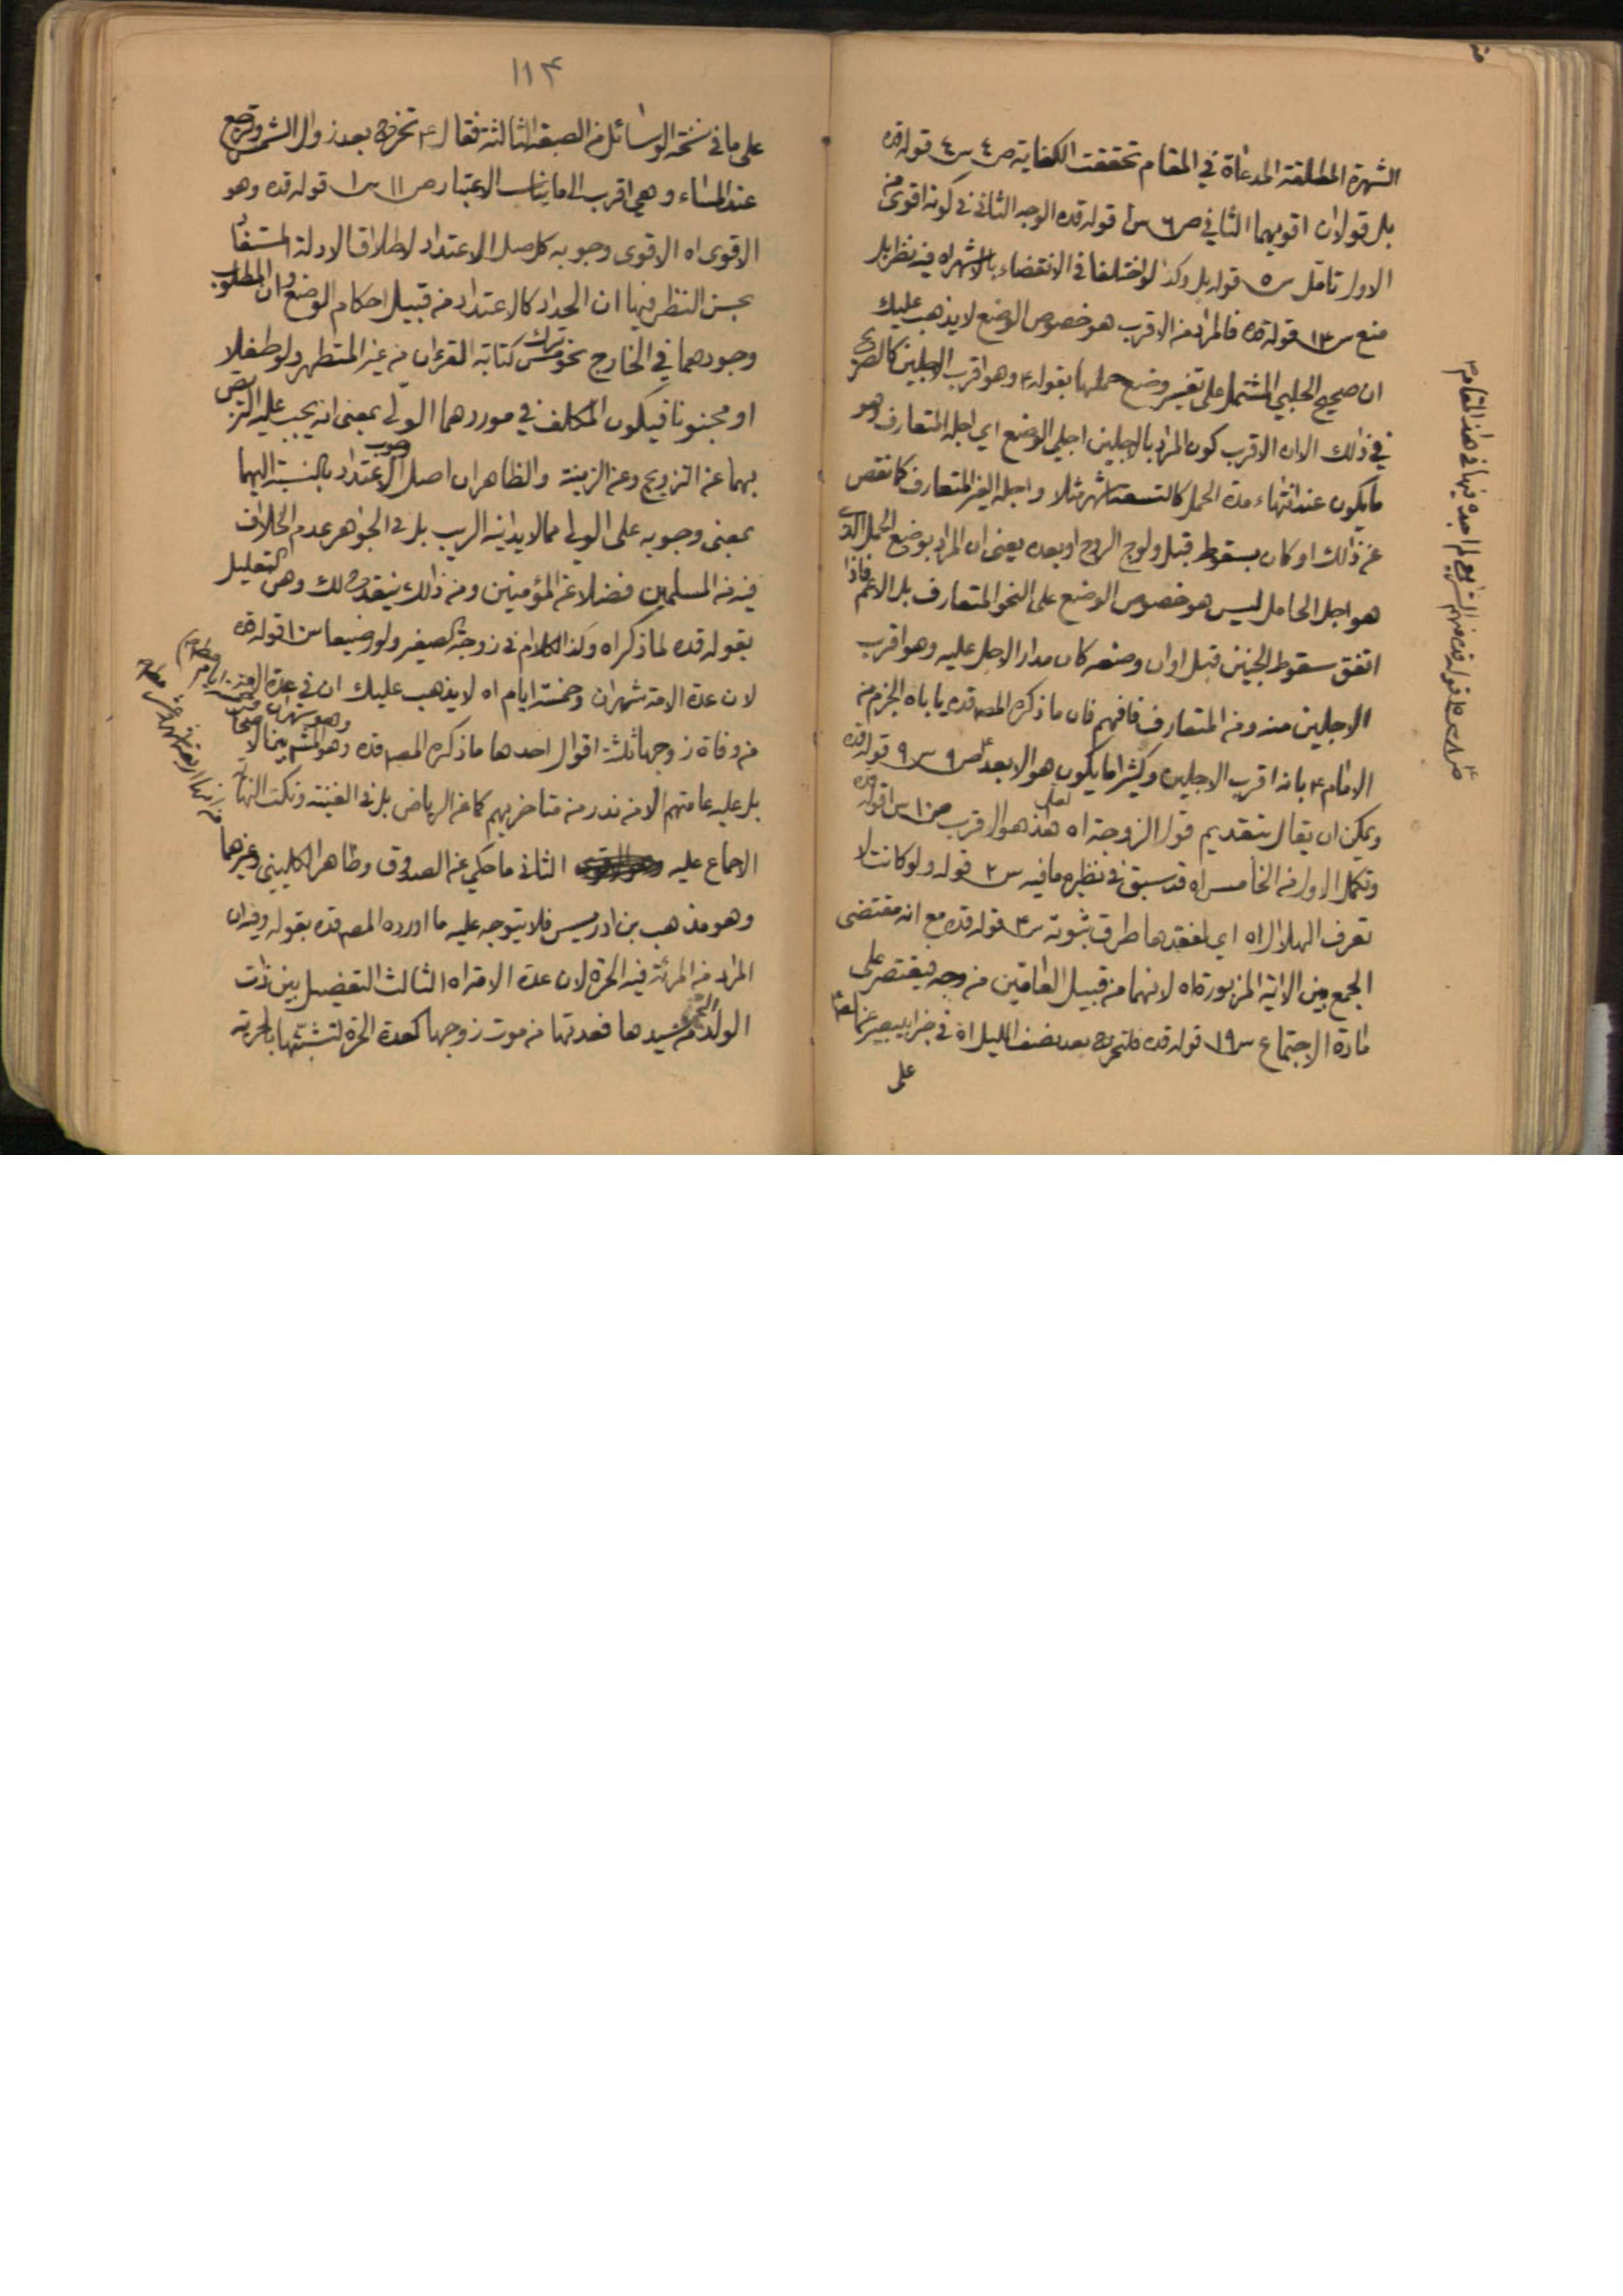 الشهرة المطلقة المدعاة في المقام تحققت الكفاية ص ٤ س ٤ قوله قده
بل قولان اقويهما الثاني ص ٦ س ١ قوله قده الوجه الثاني في كونه اقوى من
الاول تامل س ٥ قوله بل وكذا لو اختلفا في الانقضاء بالاشهر اه فيه نظر بل
منع س ١٣ قوله قده فالمراد من الاقرب هو خصوص الوضع لا يذهب عليك
ان صحيح الحلبي المشتمل على تفسير وضع حملها بقوله ٤ وهو اقرب الاجلين كالصريح
في ذلك الا ان الاقرب كون المراد بالاجلين اجلي الوضع اي اجله المتعارف وهو
ما يكون عند انتهاء مدة الحمل كالتسعة اشهر مثلا واجله الغير المتعارف كما نقص
عن ذلك او كان بسقوط قبل ولوج الروح او بعده يعني ان المراد بوضع الحمل الذي
هو اجل الحامل ليس هو خصوص الوضع على النحو المتعارف بل الاعم فاذا
اتفق سقوط الجنين قبل اوان وضعه كان مدار الاجل عليه وهو اقرب
الاجلين منه ومن المتعارف فافهم فان ما ذكره المص قده ياباه الجزم من
الامام ٤ بانه اقرب الاجلين وكثيرا ما يكون هو الابعد ص ٩ س ٩ قوله قده
ويمكن ان يقال بتقديم قول الزوجة اه لعل هذا هو الاقرب ص ١٠ س ١ قوله قده
وتكمل الاول من الخامس اه قد سبق في نظيره ما فيه س ٢ قوله ولو كانت لا
تعرف الهلال اه اي لفقدها طرق ثبوته س ٣ قوله قده مع انه مقتضى
الجمع بين الاية المزبورة اه لانهما من قبيل العامين من وجه فيقتصر على
مادة الاجتماع س ١٩ قوله قده فلتخرج بعد نصف الليل اه في خبر ابي بصير عنه ٤
على
١١٤
على ما في نسخة الوسائل من الصيغة الثالثة فقال ٤ تخرج بعد زوال الشمس وترجع
عند المساء وهي اقرب الى ما يناسب الاعتبار ص ١١ س ١ قوله قده وهو
الاقوى اه الاقوى وجوبه كاصل الاعتداد لاطلاق الادلة المستفاد
بحسن النظر فيها ان الحداد كالاعتداد من قبيل احكام الوضع وان المطلوب
وجودهما في الخارج نحو ترك مس كتابة القرءان من غير المتطهر ولو طفلا
او مجنونا فيكون المكلف في موردهما الولي بمعنى انه يجب عليه التربص
بهما عن التزويج وعن الزينة والظاهر ان اصل وجوب الاعتداد بالنسبة اليهما
بمعنى وجوبه على الولي مما لا يدانيه الريب بل في الجواهر عدم الخلاف
فيه من المسلمين فضلا عن المؤمنين ومن ذلك ينقدح لك وهن التعليل
بقوله قده لما ذكراه وكذا الكلام في زوجة الصغير ولو رضيعا س ١٠ قوله قده
لان عدة الامة شهران وخمسة ايام اه لا يذهب عليك ان في عدة الامة
من وفاة زوجها ثلثة اقوال احدها ما ذكره المص قده وهو المشهور بين الاصحاب
بل عليه عامتهم الا من ندر من متاخريهم كما عن الرياض بل في الغنية ونكت النهاية
الاجماع عليه الثاني ما حكي عن الصدوق وظاهر الكليني وغيرهما
وهو مذهب بن ادريس فلا يتوجه عليه ما اورده المص قده بقوله وفيه ان
المراد من المرئة فيه الحرة لان عدة الامة اه الثالث التفصيل بين ذات
الولد من سيدها فعدتها من موت زوجها كعدة الحرة لتشبثها بالحرية